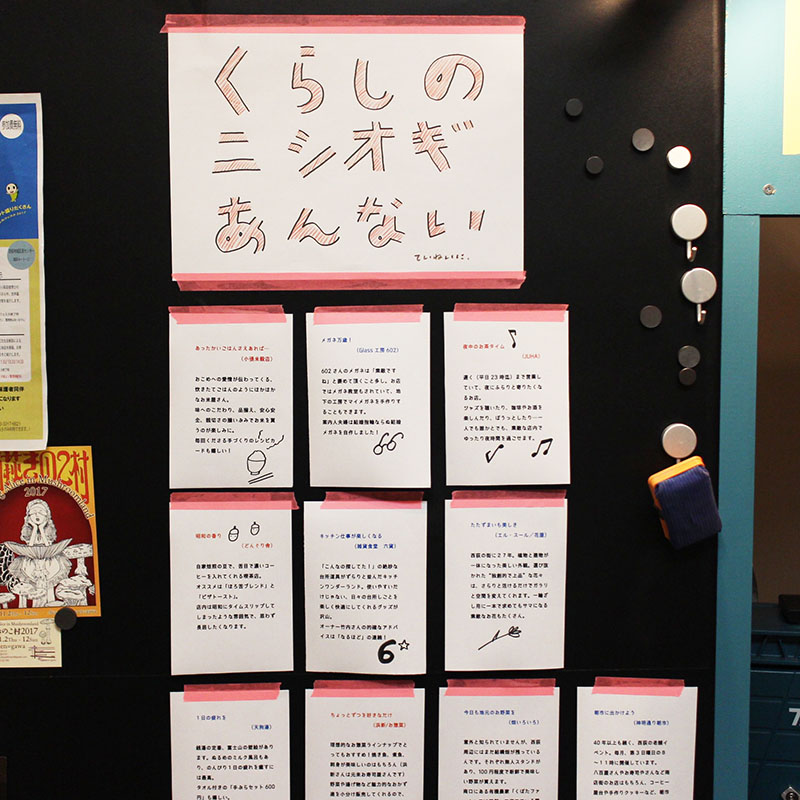 くらしの
ニシオギ
あんない
ていねいに.
あったかいごはんさえあれば…
(小張米穀店)
おこめへの愛情が伝わってくる、
炊きたてごはんのようにほかほか
なお米屋さん。
味へのこだわり、品揃え、安心安
全、親切さの揃いぶみでお米を買
うのが楽しみに。
毎回くださる手づくりのレシピカ
ードも嬉しい！
メガネ万歳！
(Glass 工房 602)
602 さんのメガネは「素敵です
ね」と褒めて頂くこと多し。お店
ではメガネ教室もされていて、地
下の工房でマイメガネを手作りす
ることもできます。
案内人夫婦は結婚指輪ならぬ結婚
メガネを自作しました！
夜中のお茶タイム
(JUHA)
遅く（平日 23 時迄）まで営業し
ていて、夜にふらりと寄りたくな
るお店。
ジャズを聴いたり、珈琲やお酒を
楽しんだり、ぼうっとしたり…一
人でも誰かとでも、素敵な店内で
ゆったり夜時間を過ごせます。
昭和の香り
(どんぐり舎)
自家焙煎の豆で、苦目で濃いコー
ヒーを入れてくれる喫茶店。
オススメは「ほろ苦ブレンド」と
「ピザトースト」。
店内は昭和にタイムスリップして
しまったような雰囲気で、思わず
長居したくなります。
キッチン仕事が楽しくなる
(雑貨食堂 六貨)
「こんなの探してた！」の絶妙な
台所道具がずらりと並んだキッチ
ンワンダーランド。使いやすいだ
けじゃない、日々の台所しごとを
楽しく快適にしてくれるグッズが
沢山。
オーナー竹内さんの的確なアドバ
イスは「なるほど」の連続！
6
たたずまいも美しき
(エル・スール／花屋)
西荻の街に27年。植物と建物が
一体になった美しい外観。選び抜
かれた“独創的で上品”な花々
は、さらりと活けるだけでガラリ
と空間を変えてくれます。一輪ざ
し用に一本で求めてもサマになる
素敵なお花もたくさん。
1日の疲れを
(天狗湯)
銭湯の定番、富士山の壁絵があり
ます。ぬるめのミルク風呂もあ
り、のんびり1日の疲れを癒すに
は最高。
タオル付きの「手ぶらセット600
円」も嬉しい。
ちょっとずつを好きなだけ
(浜新/お惣菜)
理想的なお惣菜ラインナップでと
ってもおすすめ！焼き魚、煮魚、
刺身が美味しいのはもちろん（浜
新さんは元来お寿司屋さんです）
野菜や揚げ物など魅力的なおかず
達を小分け販売してくれるので、
今日も地元のお野菜を
(畑いろいろ)
意外と知られていませんが、西荻
周辺にはまだ結構畑が残っている
んです。それぞれ無人スタンドが
あり、100円程度で新鮮で美味し
い野菜が買えます。
南口にある有機農家「くばたファ
朝市に出かけよう
(神明通り朝市)
40年以上も続く、西荻の老舗イ
ベント。毎月、第3日曜日の8
〜11時に開催しています。
八百屋さんやお寿司やさんなど商
店街のお店はもちろん、コーヒー
屋台や手作りクッキーなど、朝市
2017